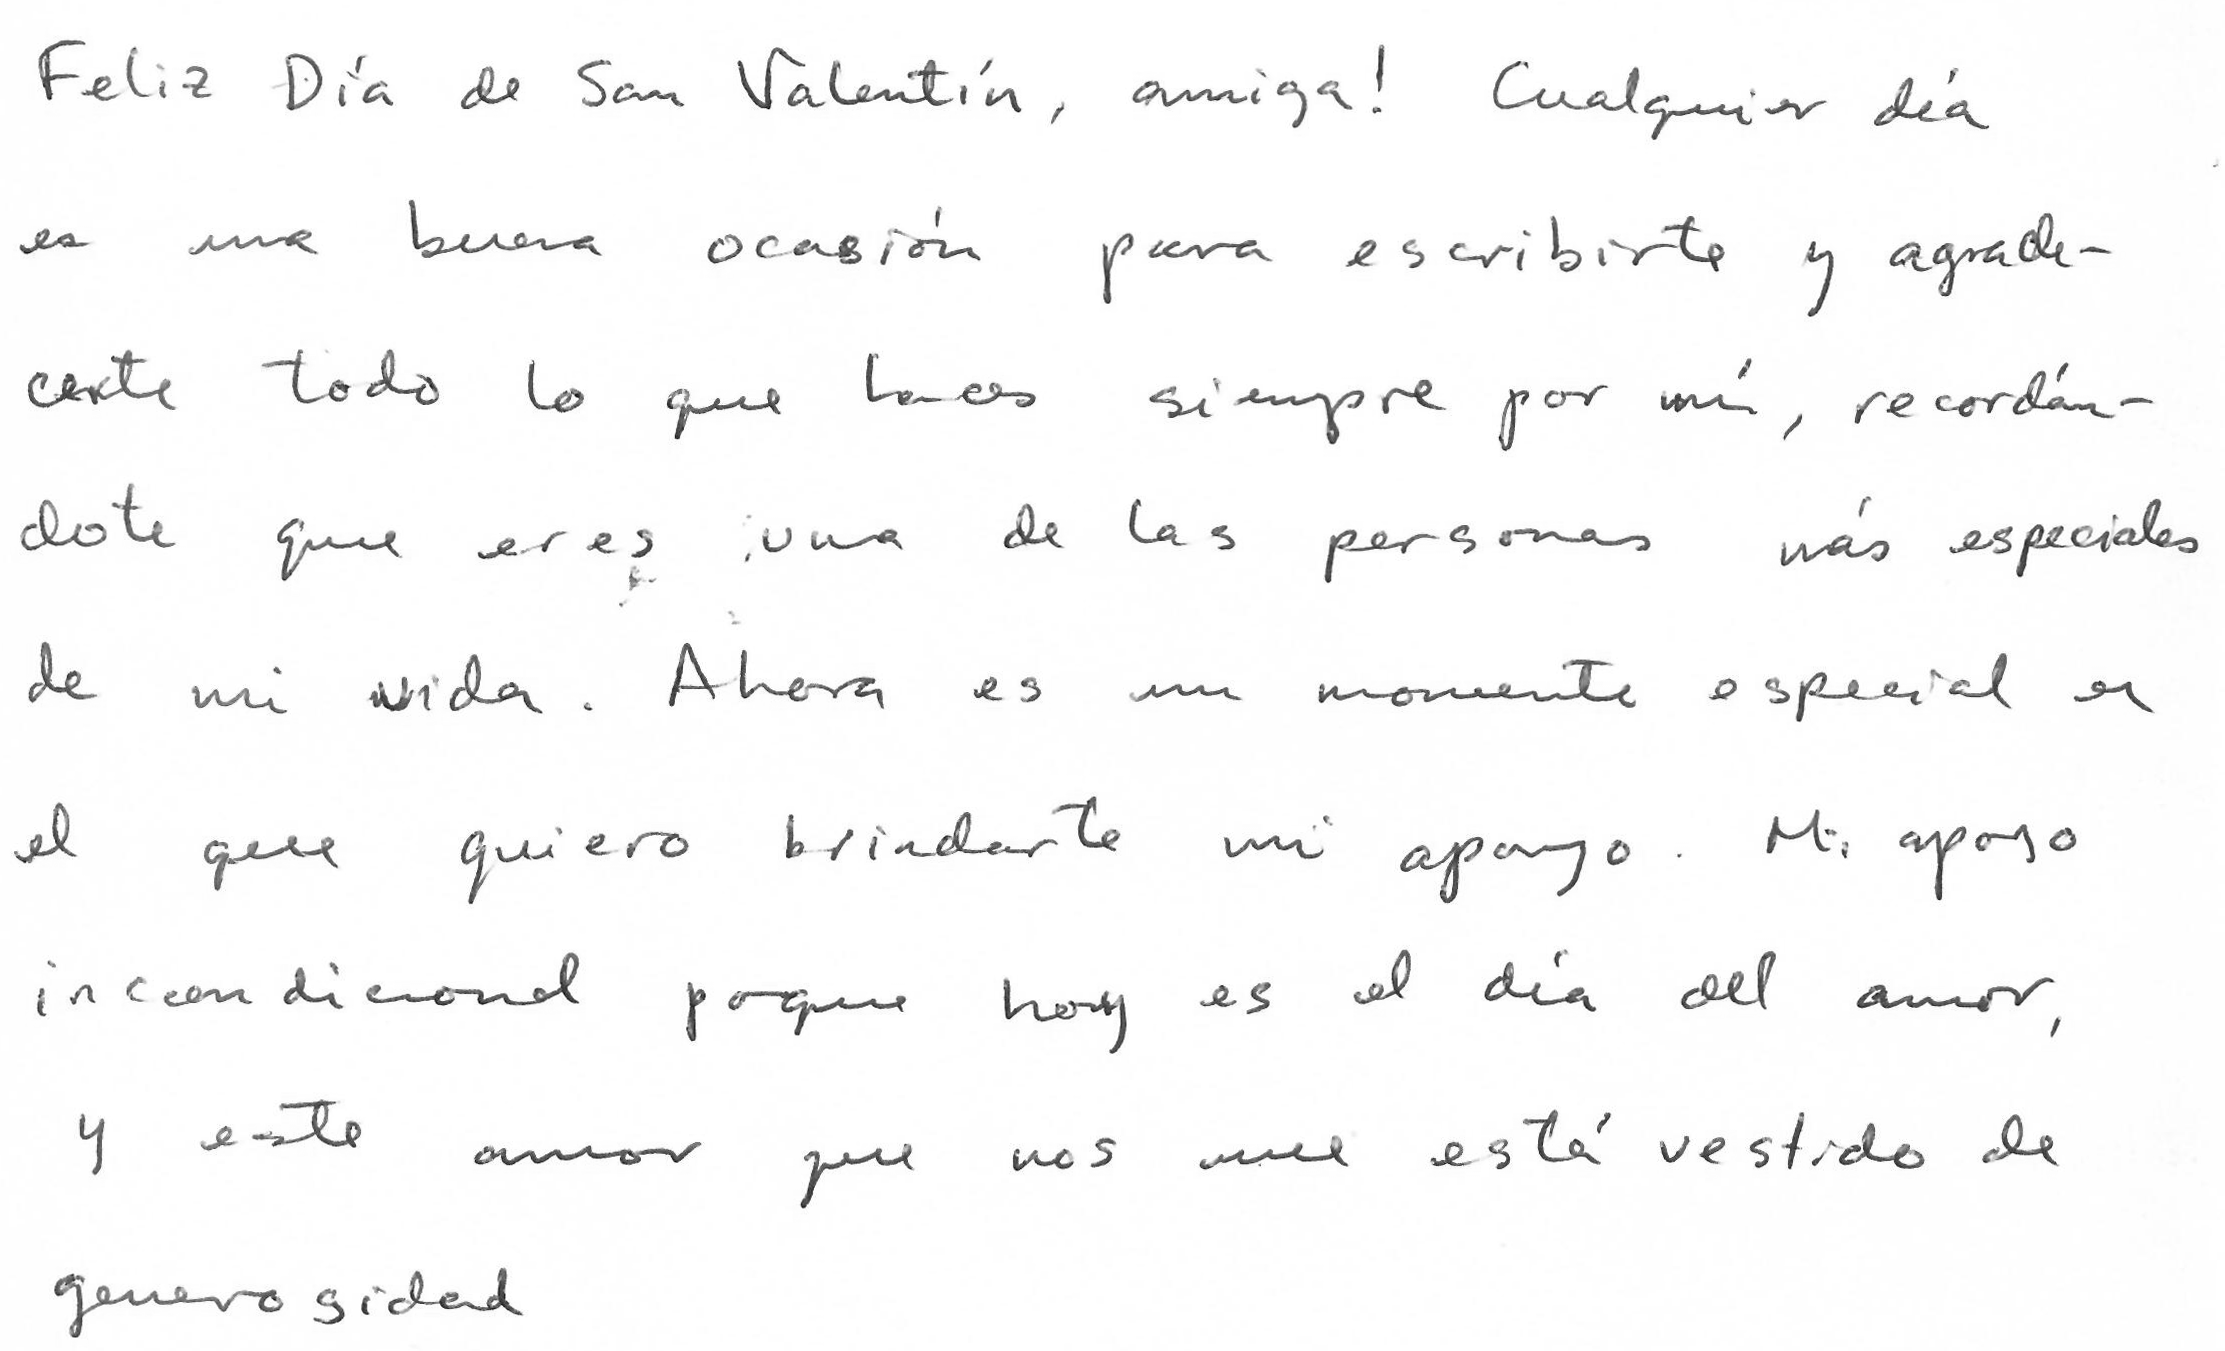 Feliz Día de San Valentín, amiga! Cualquier día
es una buena ocasión para escribirte y agrade-
certe todo lo que haces siempre por mí, recordán-
dote que eres una de las personas más especiales
de mi vida. Ahora es un momento especial en
el que quiero brindarte mi apoyo. Mi apoyo
incondicional poque hoy es el día del amor,
y este amor que nos une está vestido de
generosidad